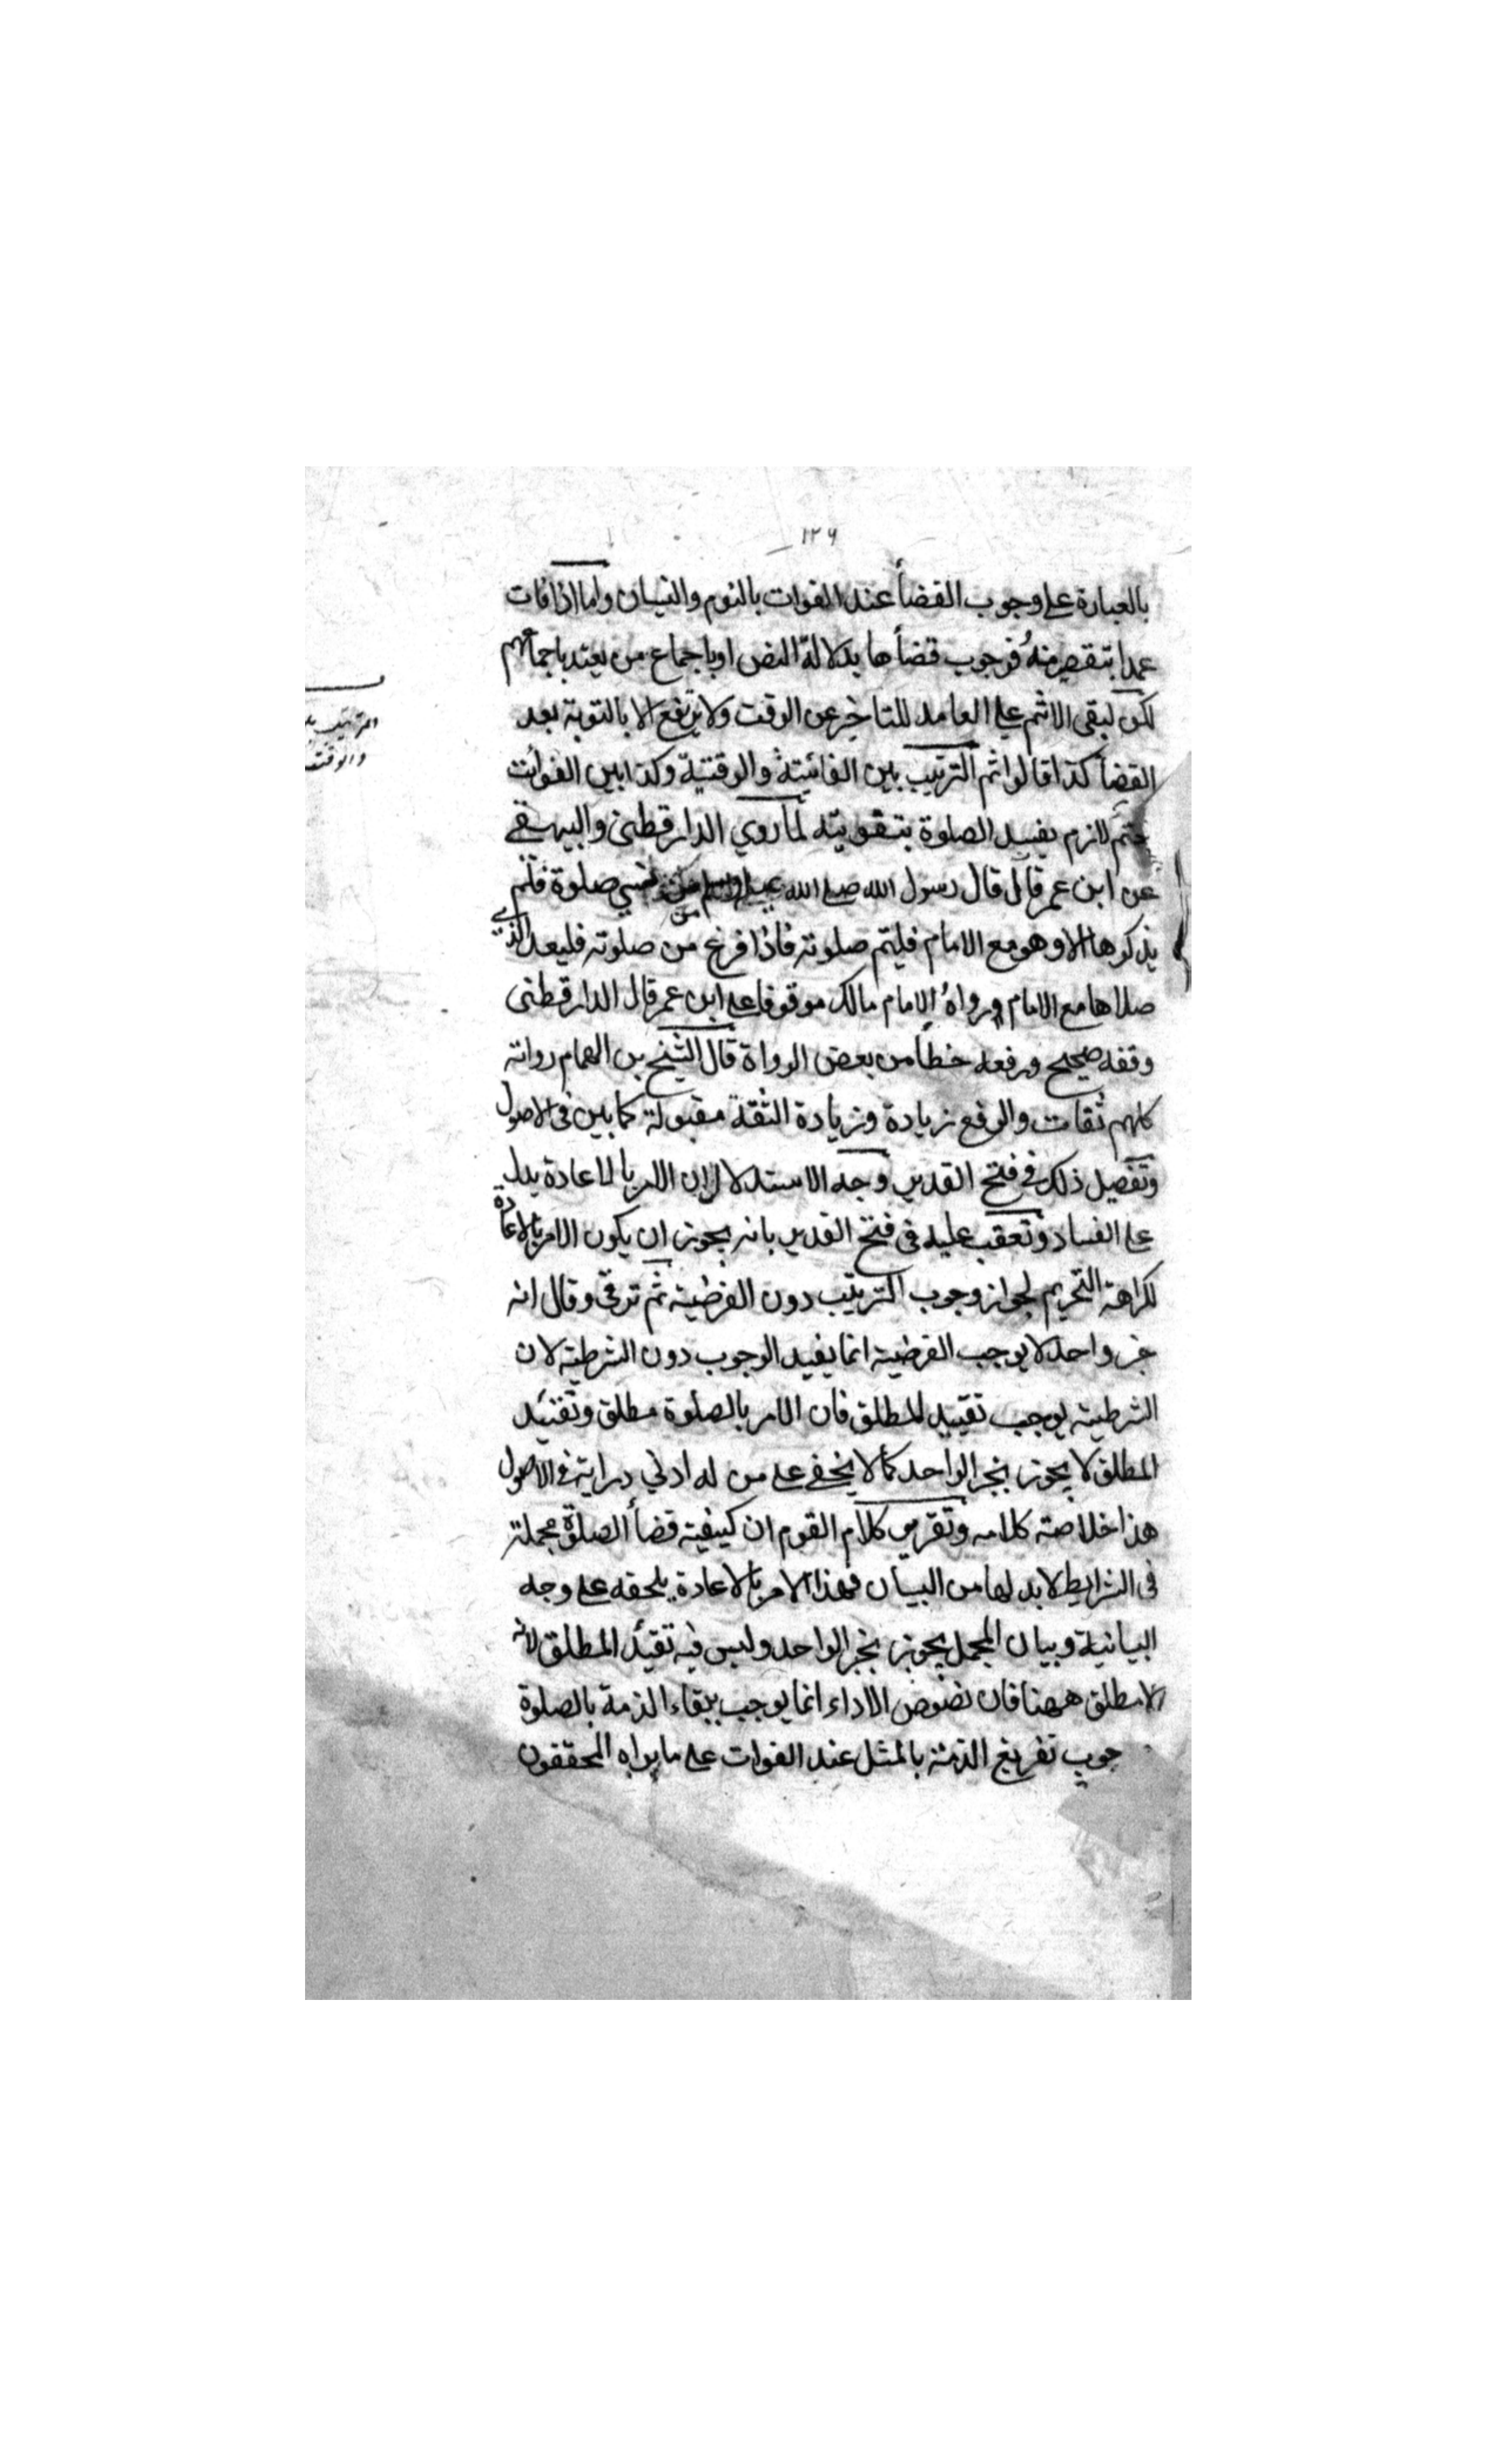 ١٢٦
بالعبارة على وجوب القضأ عند الفوات بالنوم والنسيان واما اذا فات
عمدا بتقصير منهُ فوجوب قضأها بدلالة النص او باجماع من يعتد باجماعهم
لكن لبقى الاثم على العامد للتاخير عن الوقت ولا يرتفع الا بالتوبة بعد
القضأ كذا قالوا ثم الترتيب بين الفائيتة والوقتية وكذا بين الفوائت
حتم لازم يفسد الصلوة بتفويته لما روي الدارقطنى والبيهقي
عن ابن عمر قال قال رسول الله صلى الله عليه وسلم من نسي صلوة فلم
يذكرها الا وهو مع الامام فليتم صلوته فاذا فرغ من صلوته فليعد التي
صلاها مع الامام ورواهُ الامام مالك موقوفا على ابن عمر قال الدارقطنى
وقفه صحيح ورفعه خطأ من بعض الرواة قال الشيخ بن الهمام رواته
كلهم ثقات والرفع زيادة وزيادة الثقة مقبولة كما بين فى الاصول
وتفصيل ذلك في فتح القدير وجه الاستدلال ان الامر بالاعادة يدل
على الفساد وتعقب عليه فى فتح القدير بانه يجوز ان يكون الامر بالاعادة
لكراهة التحريم لجواز وجوب الترتيب دون الفرضية ثم ترقى وقال انه
خبر واحد لا يوجب الفرضية انما يفيد الوجوب دون الشرطية لان
الشرطية يوجب تقييد المطلق فان الامر بالصلوة مطلق وتقييد
المطلق لا يجوز بخبر الواحد كما لا يخفى على من له ادنى دراية في الاصول
هذا خلاصة كلامه وتقرير كلام القوم ان كيفية قضأ الصلوة مجملة
فى الشرايط لابد لها من البيان فهذا الامر بالاعادة يلحقه على وجه
البيانية وبيان المجمل يجوز بخبر الواحد وليس فيه تقيد المطلق لانه
لا مطلق ههنا فان نصوص الاداء انما يوجب ببقاء الذمة بالصلوة
جوب تفريغ الذمة بالمثل عند الفوات على ما يراه المحققون
الترتيب
والوقت